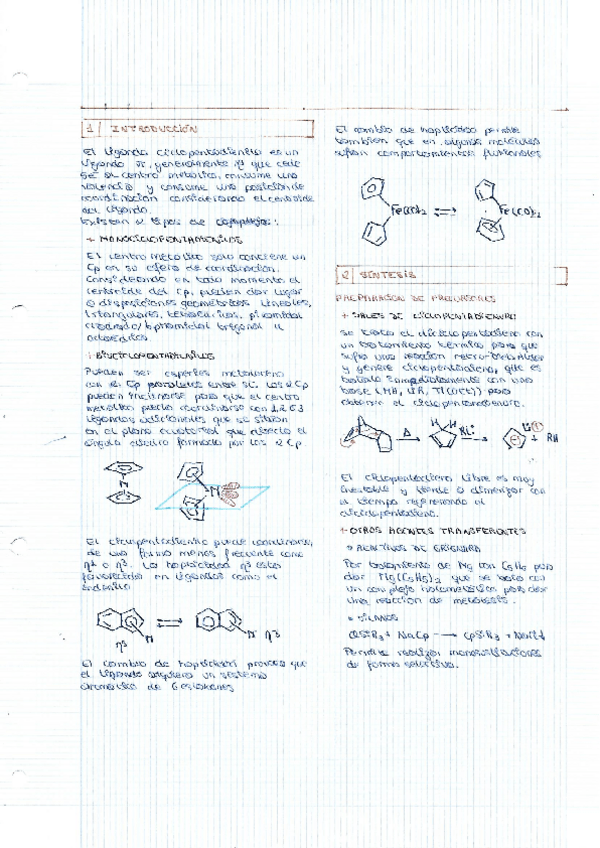 1 | INTRODUCCIÓN
El ligando ciclopentadienilo es un
ligando π, generalmente η5 que cede
5e al centro metálico, consume una
valencia y consume una posición de
coordinación considerando el centroide
del ligando.
Existen 2 tipos de complejos:
+ MONOCICLOPENTADIENILOS
El centro metálico solo contiene un
Cp en su esfera de coordinación.
Considerando en todo momento el
centroide del Cp, pueden dar lugar
a disposiciones geométricas lineales,
triangulares, tetraédricas, piramidal
cuadrada/bipiramidal trigonal u
octaédrica
+ BISCICLOPENTADIENILOS
Pueden ser especies metaloceno
con el Cp paralelos entre sí. Los 2 Cp
pueden inclinarse para que el centro
metálico pueda coordinarse con 1, 2 ó 3
ligandos adicionales que se sitúan
en el plano ecuatorial que bisecta el
ángulo diedro formado por los 2 Cp.
M
El ciclopentadienilo puede coordinarse,
de una forma menos frecuente como
η2 o η3. La hapticidad η3 está
favorecida en ligandos como el
indenilo
M M
η5 η3
El cambio de hapticidad provoca que
el ligando adquiera un sistema
aromático de 6 eslabones
El cambio de hapticidad permite
también que en algunas moléculas
sufran comportamientos fluxionales
Fe(CO)2 Fe(CO)2
2 | SÍNTESIS
PREPARACIÓN DE PRECURSORES
+ SALES DE CICLOPENTADIENURO
Se trata el diciclopentadieno con
un tratamiento térmico para que
sufra una reacción retro-Diels-Alder
y genere ciclopentadieno, que es
tratado inmediatamente con una
base
obtener el ciclopentadienuro.
Δ H H RLi + RH
El ciclopentadieno libre es muy
inestable y tiende a dimerizar con
el tiempo regenerando el
diciclopentadieno.
+ OTROS AGENTES TRANSFERENTES
• REACTIVOS DE GRIGNARD
Por tratamiento de Mg con C5H6 para
dar Mg(C5H5)2 que se trata con
un complejo halometálico para dar
una reacción de metátesis.
• SILANOS
ClSiR3 + NaCp → CpSiR3 + NaCl
Permite realizar monosustituciones
de forma selectiva.